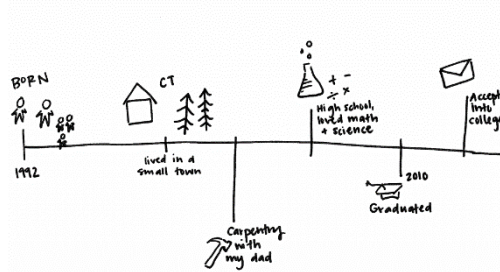 BORN
1992
CT
lived in a
small town
Carpentry
with
my dad
+ -
÷ ×
High school,
loved math
+ science
2010
Graduated
Accept
into
college